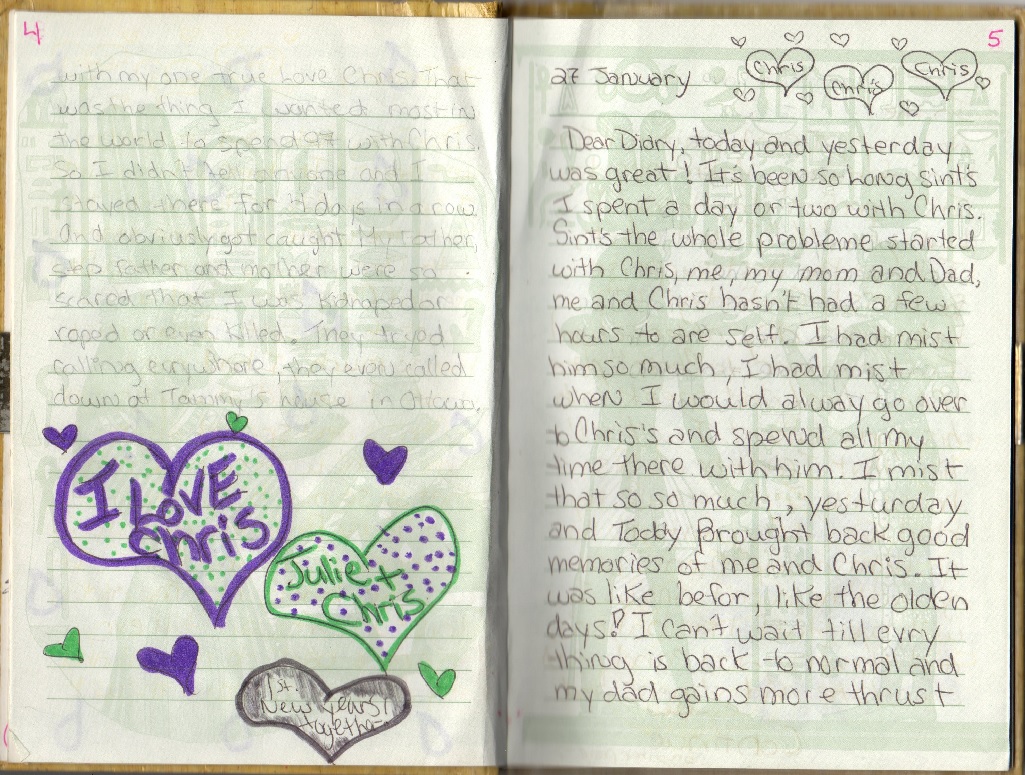 4
with my one true Love Chris. That
was the thing I wanted most in
the world to spend 97 with Chris.
So I didn't tell anyone and I
stayed there for 4 days in a row.
And obviusly got caught. My Father,
step father and mother were so
scared that I was kidnaped or
raped or even killed. They tryed
calling everywhere, they even called
down at Tammy's house in Ottawa.
I LOVE
Chris
Julie +
Chris
1st.
New Years
together
5
Chris
Chris
Chris
27 January
Dear Diary, today and yesterday
was great! It's been so long sint's
I spent a day or two with Chris.
Sint's the whole probleme started
with Chris, me, my mom and Dad,
me and Chris hasn't had a few
hours to are self. I had mist
him so much, I had mist
when I would alway go over
to Chris's and spend all my
time there with him. I mist
that so so much, yesturday
and Today Brought back good
memories of me and Chris. It
was like befor, like the olden
days! I can't wait till evry
thing is back to normal and
my dad gains more thrust